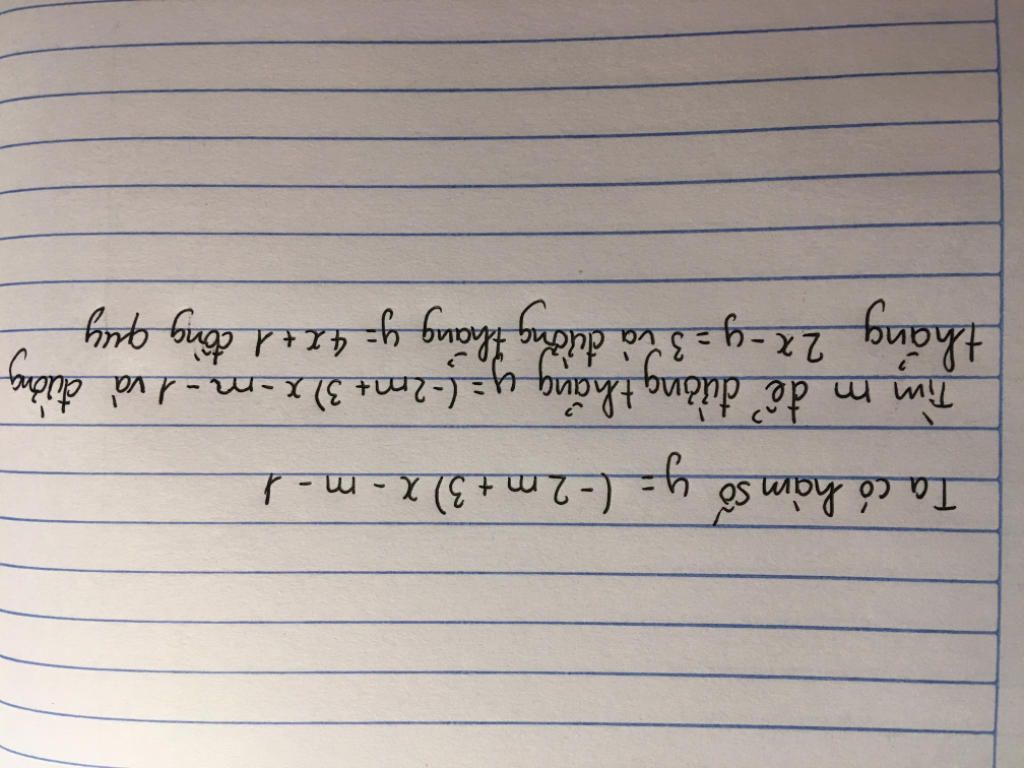 Ta có hàm số y = (-2m + 3)x - m - 1
Tìm m để đường thẳng y = (-2m + 3)x - m - 1 và đường
thẳng 2x - y = 3 và đường thẳng y = 4x + 1 đồng quy